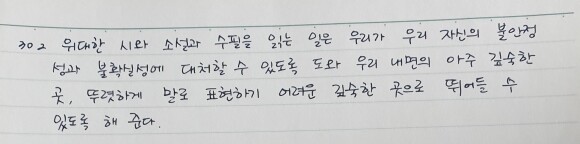 302 위대한 시와 소설과 수필을 읽는 일은 우리가 우리 자신의 불안정
성과 불확실성에 대처할 수 있도록 도와 우리 내면의 아주 깊숙한
곳, 뚜렷하게 말로 표현하기 어려운 깊숙한 곳으로 뛰어들 수
있도록 해 준다.